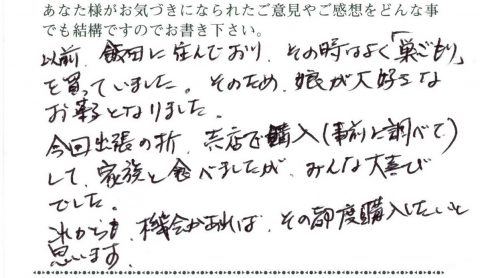 あなた様がお気づきになられたご意見やご感想をどんな事
でも結構ですのでお書き下さい。
以前、飯田に住んでおり、その時はよく「巣ごもり」
を買っていました。そのため、娘が大好きな
お菓子となりました。
今回出張の折、売店で購入(事前に調べて)
して、家族と食べましたが、みんな大喜び
でした。
これからも、機会があれば、その都度購入したいと
思います。